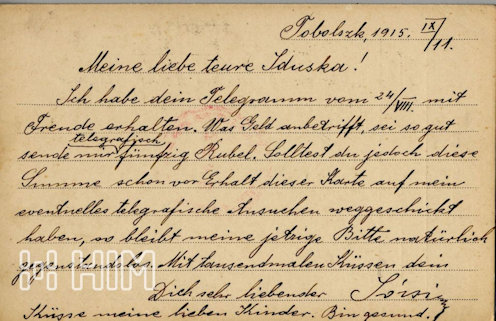 Tobolszk, 1915. IX/11.
Meine liebe teure Iduska!
Ich habe dein Telegramm vom 24/VIII. mit
Freude erhalten. Was Geld anbetrifft, sei so gut
telegrafisch
sende mir fünfzig Rubel. Solltest du jedoch diese
Summe schon vor Erhalt dieser Karte auf mein
eventuelles telegrafische Ansuchen weggeschickt
haben, so bleibt meine jetzige Bitte natürlich
gegenstandslos. Mit tausendmalen Küssen dein
HIM
Dich sehr liebender
Küsse meine lieben Kinder. Bin gesund.